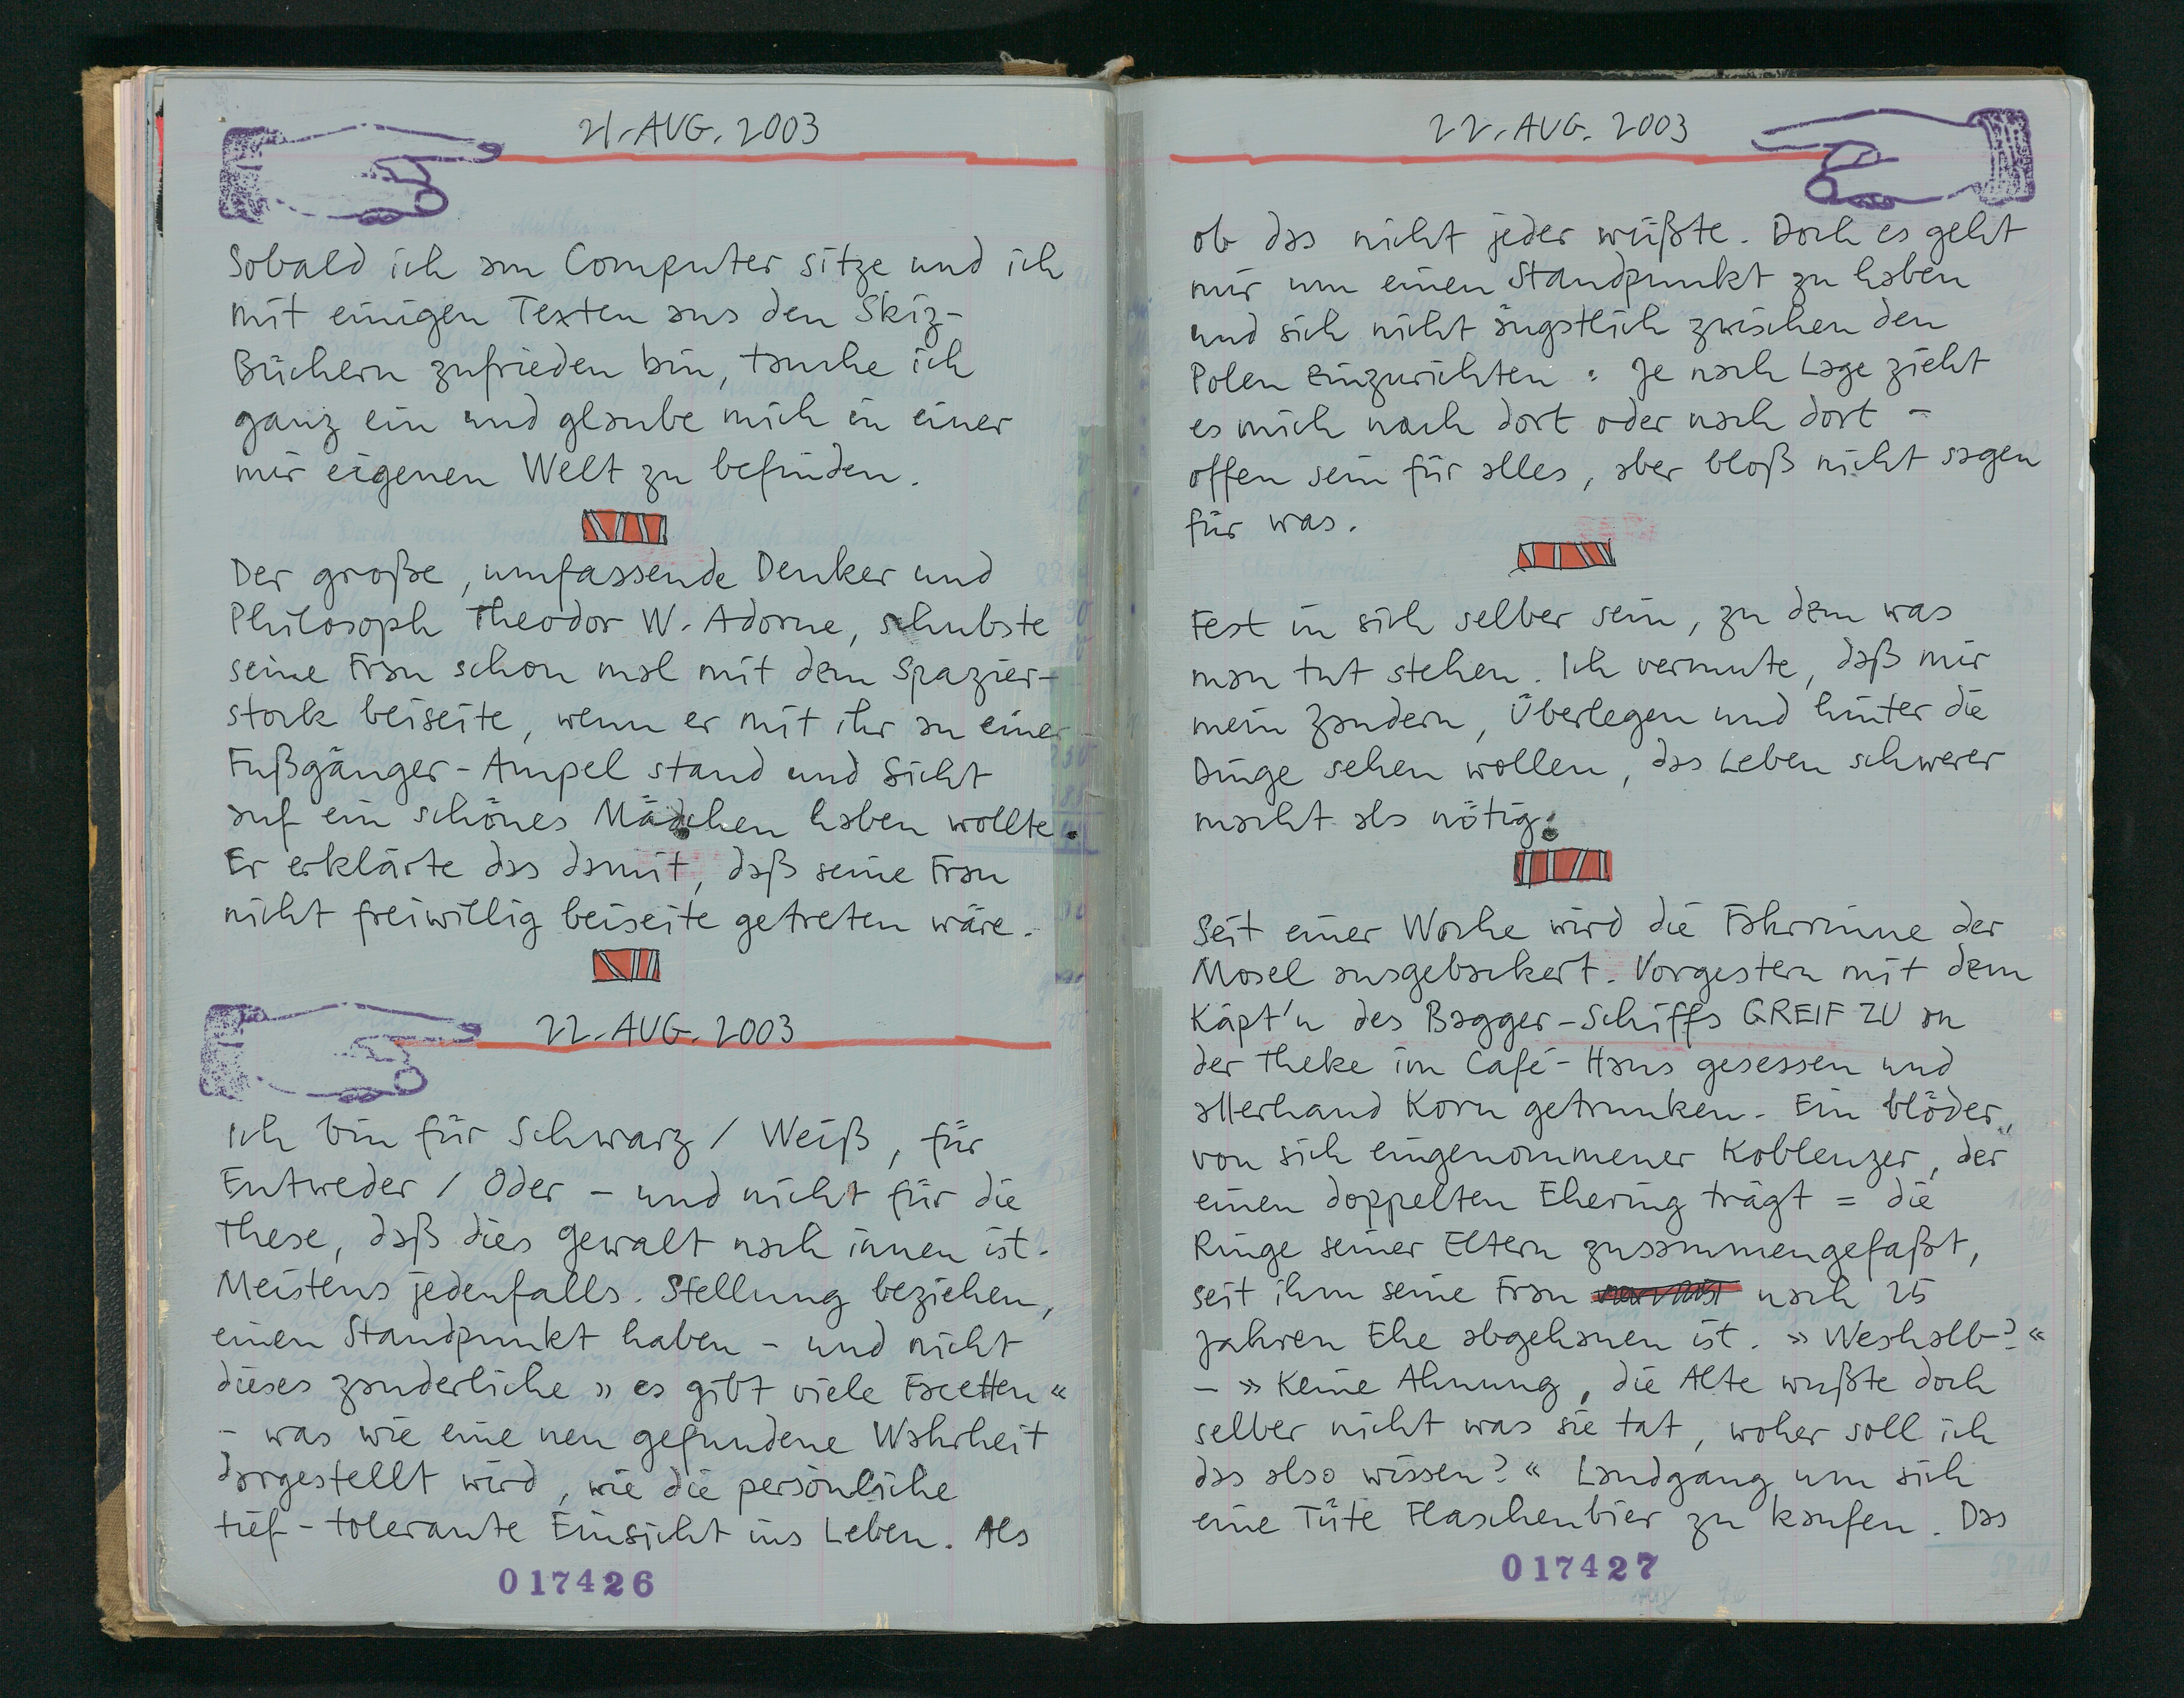 21. AUG. 2003
Sobald ich am Computer sitze und ich
mit einigen Texten aus den Skiz-
Büchern zufrieden bin, tauche ich
ganz ein und glaube mich in einer
mir eigenen Welt zu befinden.
Der große, umfassende Denker und
Philosoph Theodor W. Adorne, schubste
seine Frau schon mal mit dem Spazier-
stock beiseite, wenn er mit ihr an einer
Fußgänger-Ampel stand und Sicht
auf ein schönes Mädchen haben wollte.
Er erklärte das damit, daß seine Frau
nicht freiwillig beiseite getreten wäre.
22. AUG. 2003
Ich bin für Schwarz / Weiß, für
Entweder / Oder – und nicht für die
These, daß dies Gewalt nach innen ist.
Meistens jedenfalls. Stellung beziehen,
einen Standpunkt haben – und nicht
dieses zauderliche »es gibt viele Facetten«
– was wie eine neu gefundene Wahrheit
dargestellt wird, wie die persönliche
tief-tolerante Einsicht ins Leben. Als
017426
22. AUG. 2003
ob das nicht jeder wüßte. Doch es geht
mir um einen Standpunkt zu haben
und sich nicht ängstlich zwischen den
Polen einzurichten: Je nach Lage zieht
es mich nach dort oder nach dort –
offen sein für alles, aber bloß nicht sagen
für was.
Fest in sich selber sein, zu dem was
man tut stehen. Ich vermute, daß mir
mein Zaudern, Überlegen und hinter die
Dinge sehen wollen, das Leben schwerer
macht als nötig.
Seit einer Woche wird die Fahrrinne der
Mosel ausgebackert. Vorgestern mit dem
Käpt'n des Bagger-Schiffs GREIF ZU an
der Theke im Café-Haus gesessen und
allerhand Korn getrunken. Ein blöder,
von sich eingenommener Koblenzer, der
einen doppelten Ehering trägt = die
Ringe seiner Eltern zusammengefaßt,
seit ihm seine Frau nach 25
Jahren Ehe abgehauen ist. »Weshalb?«
– »Keine Ahnung, die Alte wußte doch
selber nicht was sie tat, woher soll ich
das also wissen?« Landgang um sich
eine Tüte Flaschenbier zu kaufen. Das
017427